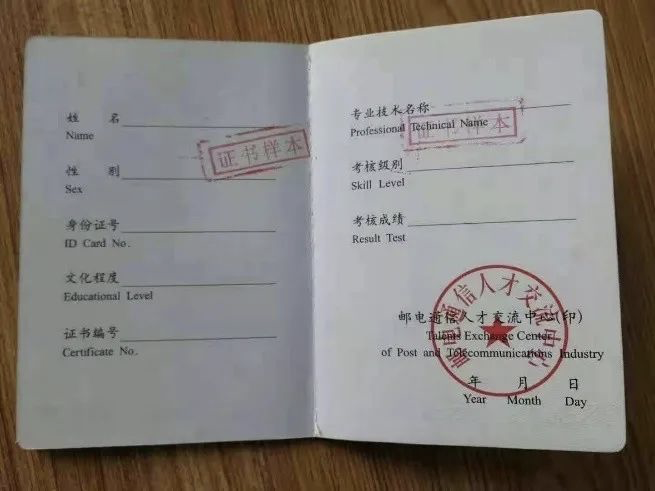 姓 名
Name
性 别
Sex
身份证号
ID Card No.
文化程度
Educational Level
证书编号
Certificate No.
证书样本
专业技术名称
Professional Technical Name
证书样本
考核级别
Skill Level
考核成绩
Result Test
邮电通信人才交流中心(印)
Talents Exchange Center
of Post and Telecommunications Industry
邮电通信人才交流中心
年 月 日
Year Month Day